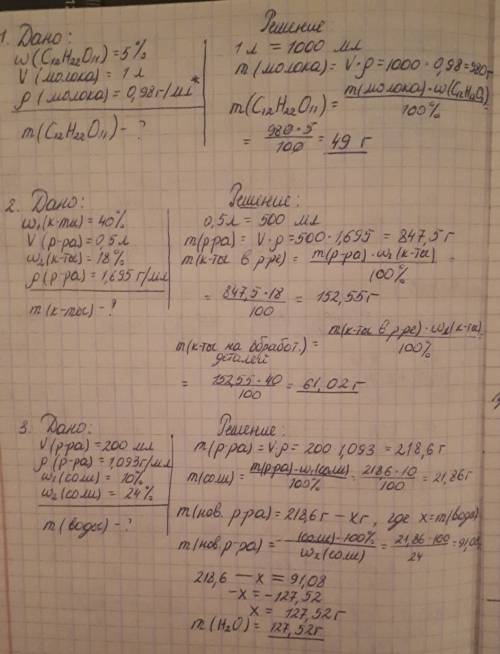 1. Дано:
w(C12H22O11) = 5%
V (молока) = 1 л
ρ (молока) = 0,98 г/мл*
m(C12H22O11) - ?
Решение
1 л = 1000 мл
m(молока) = V·ρ = 1000·0,98 = 980г
m(C12H22O11) = m(молока)·w(C12H22O11) / 100% =
= 980·5 / 100 = 49 г
2. Дано:
w₁(к-ты) = 40%
V (р-ра) = 0,5 л
w₂(к-ты) = 18%
ρ (р-ра) = 1,695 г/мл
m (к-ты) - ?
Решение:
0,5л = 500 мл
m(р-ра) = V·ρ = 500·1,695 = 847,5г
m(к-ты в р-ре) = m(р-ра)·w₂(к-ты) / 100% =
= 847,5·18 / 100 = 152,55г
m(к-ты на обработ. деталей) = m(к-ты в р-ре)·w₁(к-ты) / 100%
= 152,55·40 / 100 = 61,02г
3. Дано:
V(р-ра) = 200 мл
ρ (р-ра) = 1,093г/мл
w₁(соли) = 10%
w₂(соли) = 24%
m (воды) - ?
Решение:
m(р-ра) = V·ρ = 200 1,093 = 218,6г
m(соли) = m(р-ра)·w₁(соли) / 100% = 218,6·10 / 100 = 21,86г
m(нов. р-ра) = 218,6г - xг, где x = m(воды)
m(нов. р-ра) = (соли)·100% / w₂(соли) = 21,86·100 / 24 = 91,08
218,6 - x = 91,08
-x = -127,52
x = 127,52г
m(H2O) = 127,52г